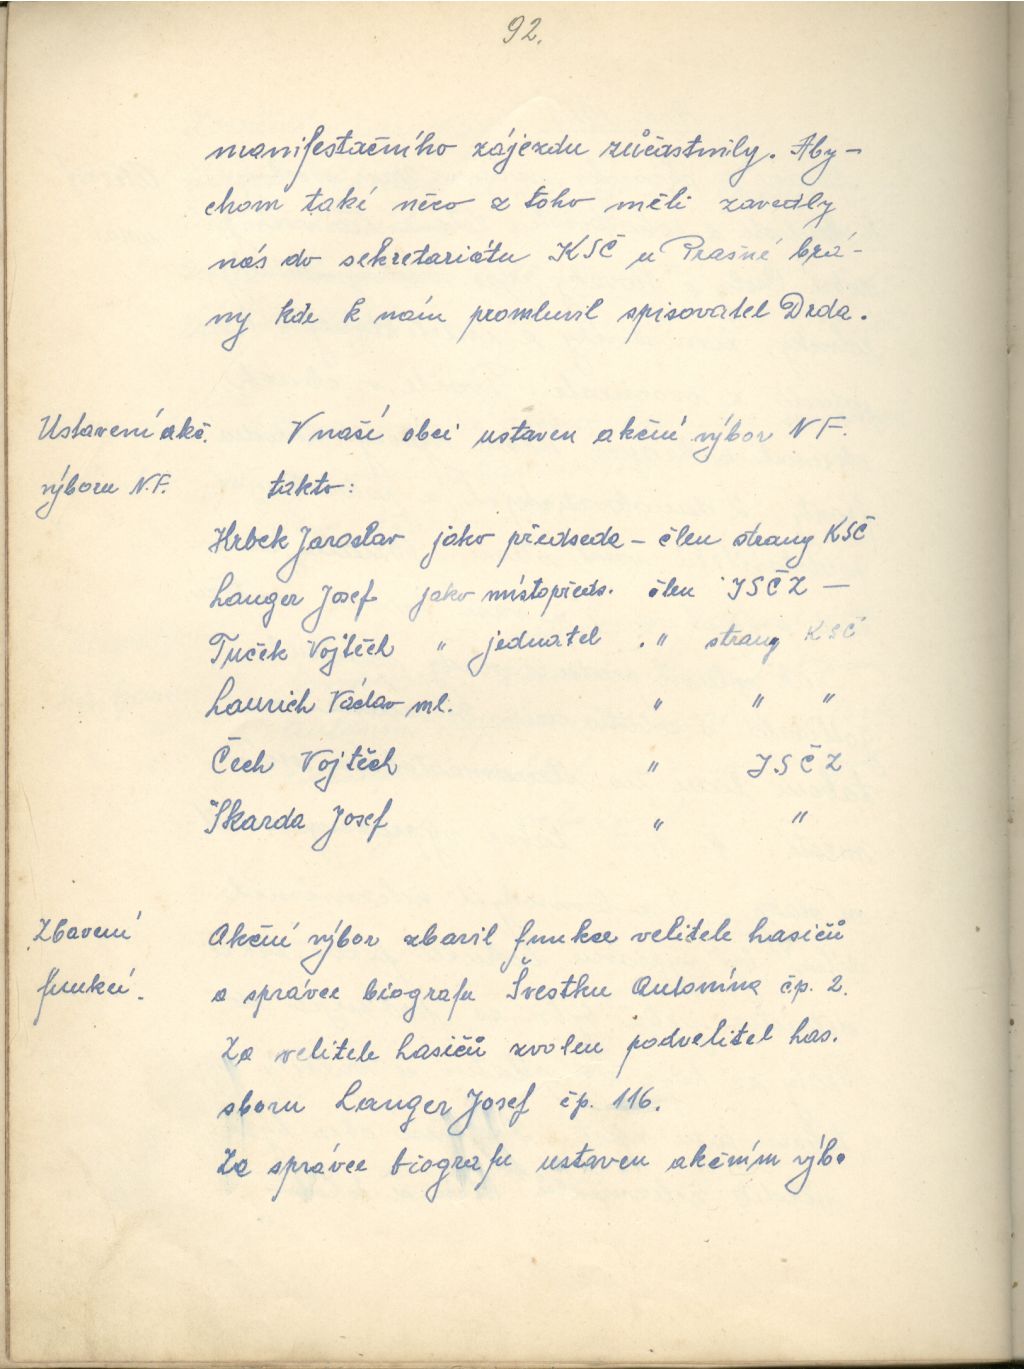 92.
manifestačního zájezdu zúčastnily. Aby-
chom také něco z toho měli zavedly
nás do sekretariátu KSČ u Prašné brá-
ny kde k nám promluvil spisovatel Drda.
Ustavení akč. V naší obci ustaven akční výbor NF.
výboru N.F. takto:
Hrbek Jaroslav jako předseda – člen strany KSČ
Langer Josef jako místopředs. člen JSČZ —
Tuček Vojtěch " jednatel . " strany KSČ
Laurich Václav ml. " " "
Čech Vojtěch " JSČZ
Škarda Josef " "
Zbavení Akční výbor zbavil funkce velitele hasičů
funkcí. a správce biografu Švestku Antonína čp. 2.
Za velitele hasičů zvolen podvelitel has.
sboru Langer Josef čp. 116.
Za správce biografu ustaven akčním výbo